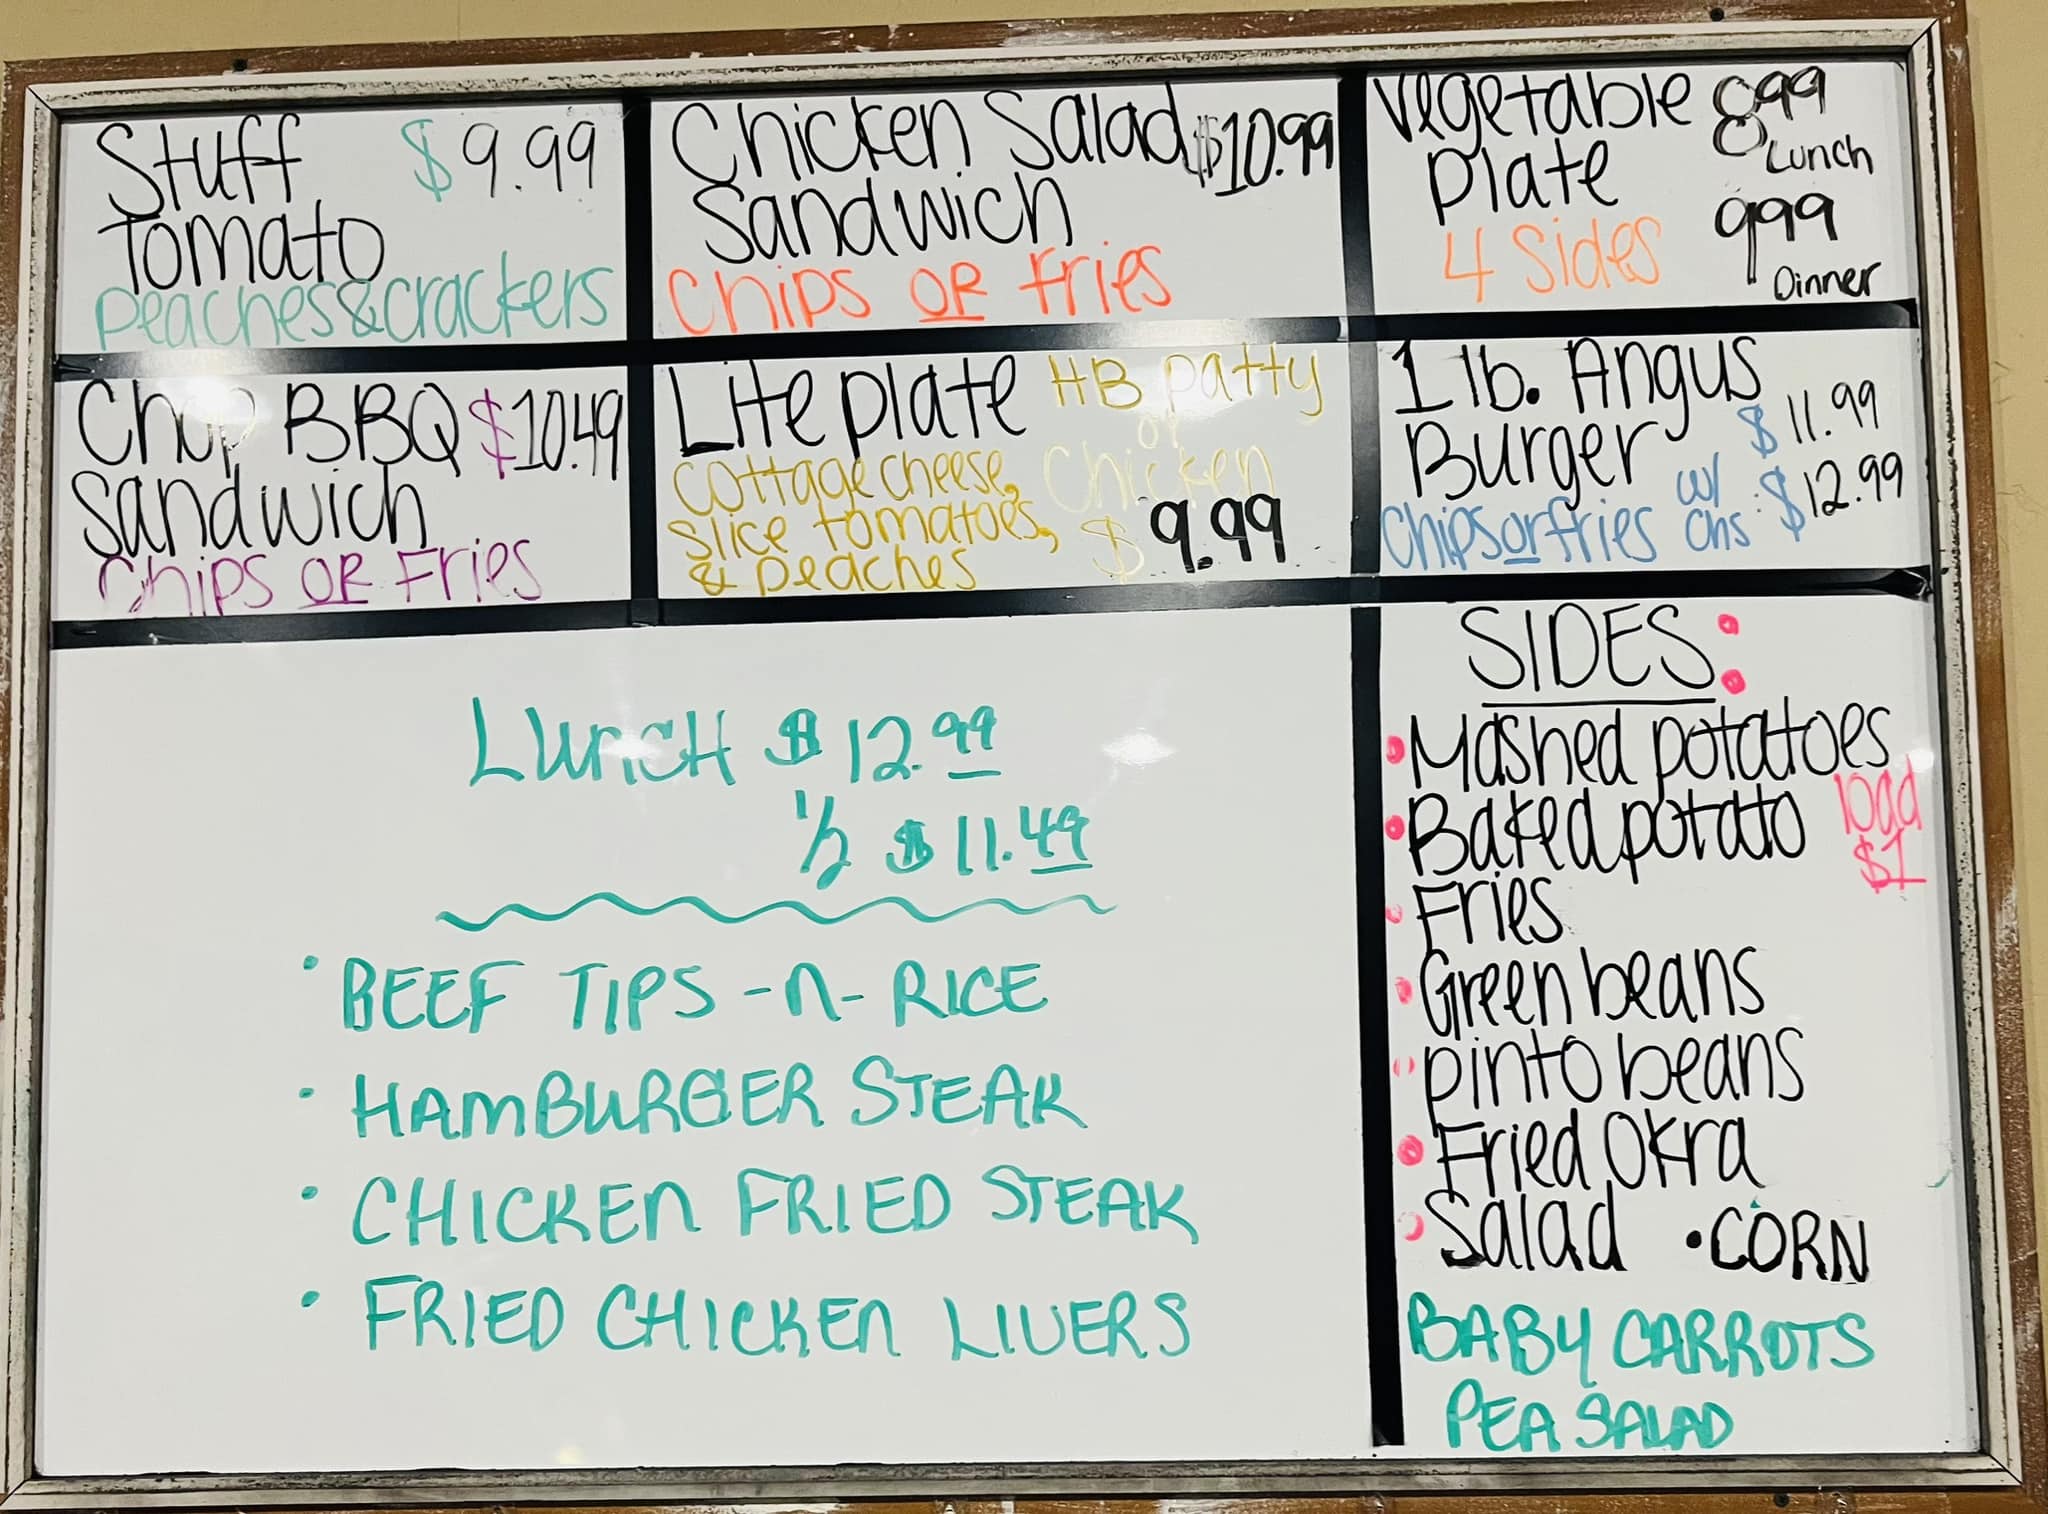 Stuff $9.99
Tomato
peaches&crackers
Chicken Salad $10.99
Sandwich
Chips OR Fries
Vegetable 899
Plate Lunch
4 Sides 999
Dinner
Chop BBQ $10.49
Sandwich
Chips OR Fries
Lite plate HB patty
or
Cottage cheese, Chicken
slice tomatoes, $9.99
& peaches
1 lb. Angus
Burger $11.99
Chips or fries w/ chs: $12.99
LUNCH $12.99
1/2 $11.49
• BEEF TIPS -N- RICE
• HAMBURGER STEAK
• CHICKEN FRIED STEAK
• FRIED CHICKEN LIVERS
SIDES:
• Mashed potatoes
• Baked potato load $1
• Fries
• Green beans
• pinto beans
• Fried Okra
• Salad • CORN
BABY CARROTS
PEA SALAD